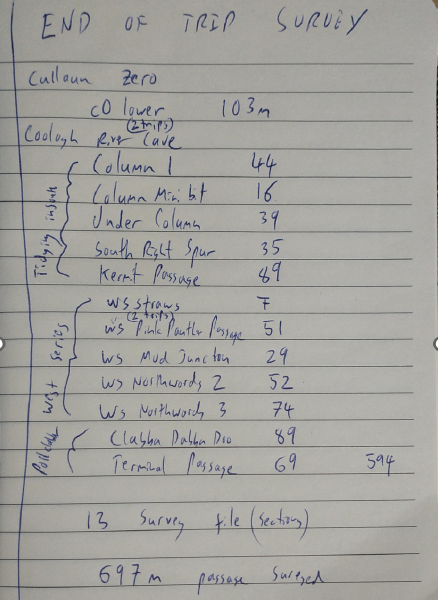 END OF TRIP SURVEY
Cullaun Zero
C0 lower 103m
(2 trips)
Coolagh River Cave
Column 1 44
Column Mini bit 16
Under Column 39
South Right Spur 35
Kermit Passage 89
Tidying insouth
WS Straws 7
(2 trips)
WS Pink Panther Passage 51
WS Mud Junction 29
WS Northwords 2 52
WS Northwords 3 74
West Series
Clabba Dabba Doo 89
Terminal Passage 69 594
13 Survey file (sections)
697m passage surveyed